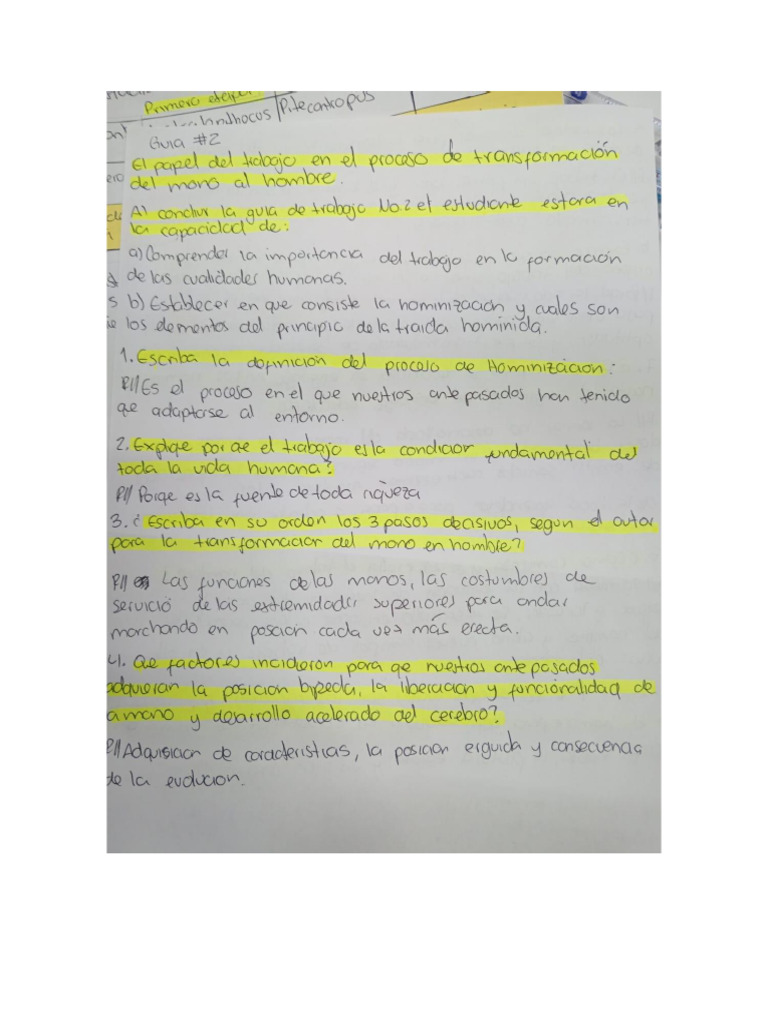 Primera etapa
Pitecantropus
Guia #2
El papel del trabajo en el proceso de transformación
del mono al hombre.
Al concluir la guia de trabajo No.2 el estudiante estara en
la capacidad de:
a) Comprender la importancia del trabajo en la formación
de las cualidades humanas.
b) Establecer en que consiste la hominización y cuales son
los elementos del principio de la traida hominida.
1. Escriba la definición del proceso de Hominización:
R// Es el proceso en el que nuestros antepasados han tenido
qe adaptarse al entorno.
2. Expliqe por qe el trabajo es la condicion fundamental de
toda la vida humana?
R// Porqe es la fuente de toda riqueza
3. ¿Escriba en su orden los 3 pasos decisivos, segun el autor
para la transformacion del mono en hombre?
R// Las funciones de las manos, las costumbres de
servició de las extremidades superiores para andar
marchando en posición cada vez más erecta.
4. Qe factores incidieron para qe nuestros antepasados
adquieran la posicion bipeda, la liberacion y funcionalidad de
a mano y desarrollo acelerado del cerebro?
R// Adquisicion de caracteristicas, la posicion erguida y consecuencia
de la evolucion.